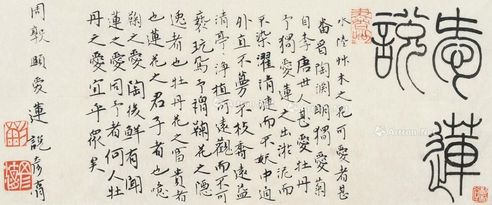 愛蓮
說
水陸艸木之花可愛者甚
蕃晉陶淵明獨愛菊
自李唐世人甚愛牡丹
予獨愛蓮之出淤泥而
不染濯清漣而不妖中通
外直不蔓不枝香遠益
清亭淨植可遠觀而不可
褻玩焉予謂鞠花之隱
逸者也牡丹花之富貴者
也蓮花之君子者也噫
鞠之愛陶後鮮有聞
蓮之愛同予者何人牡
丹之愛宜乎眾矣
周敦頤愛蓮說